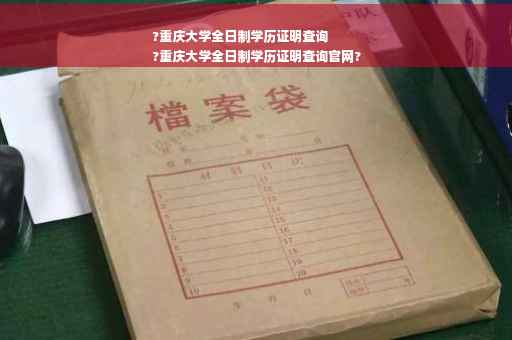 ?重庆大学全日制学历证明查询
?重庆大学全日制学历证明查询官网?
檔案袋
材料目次
1 11
2 12
3 13
4 14
5 15
6 16
7 17
8 18
9 19
10 20
年 月 日